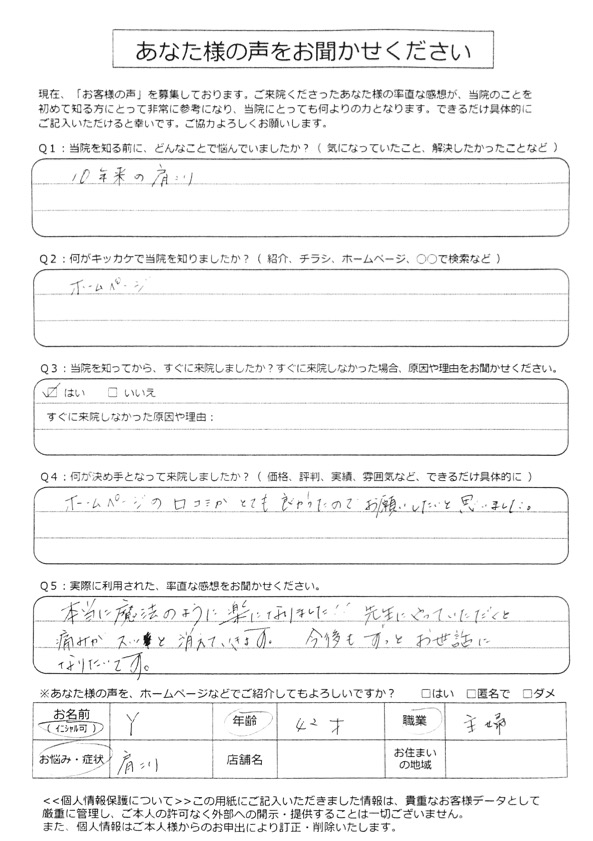 あなた様の声をお聞かせください
現在、「お客様の声」を募集しております。ご来院くださったあなた様の率直な感想が、当院のことを
初めて知る方にとって非常に参考になり、当院にとっても何よりの力となります。できるだけ具体的に
ご記入いただけると幸いです。ご協力よろしくお願いします。
Q1：当院を知る前に、どんなことで悩んでいましたか？（ 気になっていたこと、解決したかったことなど ）
10年来の肩こり
Q2：何がキッカケで当院を知りましたか？（ 紹介、チラシ、ホームページ、○○で検索など ）
ホームページ
Q3：当院を知ってから、すぐに来院しましたか？すぐに来院しなかった場合、原因や理由をお聞かせください。
☑ はい □ いいえ
すぐに来院しなかった原因や理由：
Q4：何が決め手となって来院しましたか？（ 価格、評判、実績、雰囲気など、できるだけ具体的に ）
ホームページの口コミがとても良かったのでお願いしたいと思いました。
Q5：実際に利用された、率直な感想をお聞かせください。
本当に魔法のように楽になりました!! 先生にやっていただくと
痛みがスッと消えていきます。 今後もずっとお世話に
なりたいです。
※あなた様の声を、ホームページなどでご紹介してもよろしいですか？ □はい □匿名で □ダメ
お名前 （イニシャル可） Y 年齢 42才 職業 主婦
お悩み・症状 肩こり 店舗名 お住まいの地域
<<個人情報保護について>>この用紙にご記入いただきました情報は、貴重なお客様データとして
厳重に管理し、ご本人の許可なく外部への開示・提供することは一切ございません。
また、個人情報はご本人様からのお申出により訂正・削除いたします。